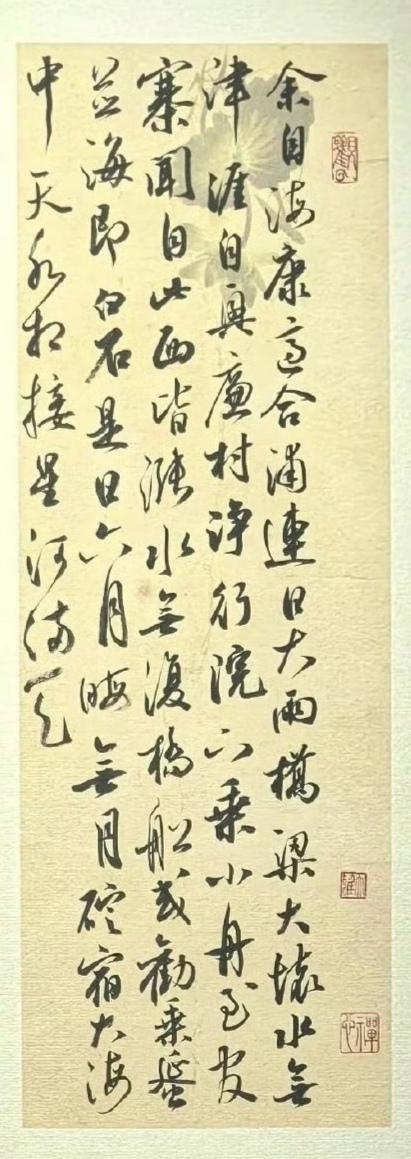 余自海康適合浦連日大雨橋梁大壞水無
津涯自興廉村淨行院下乘小舟至官
寨聞自此西皆漲水無復橋船或勸乘蜑
並海即白石是日六月晦無月碇宿大海
中天水相接星河滿天